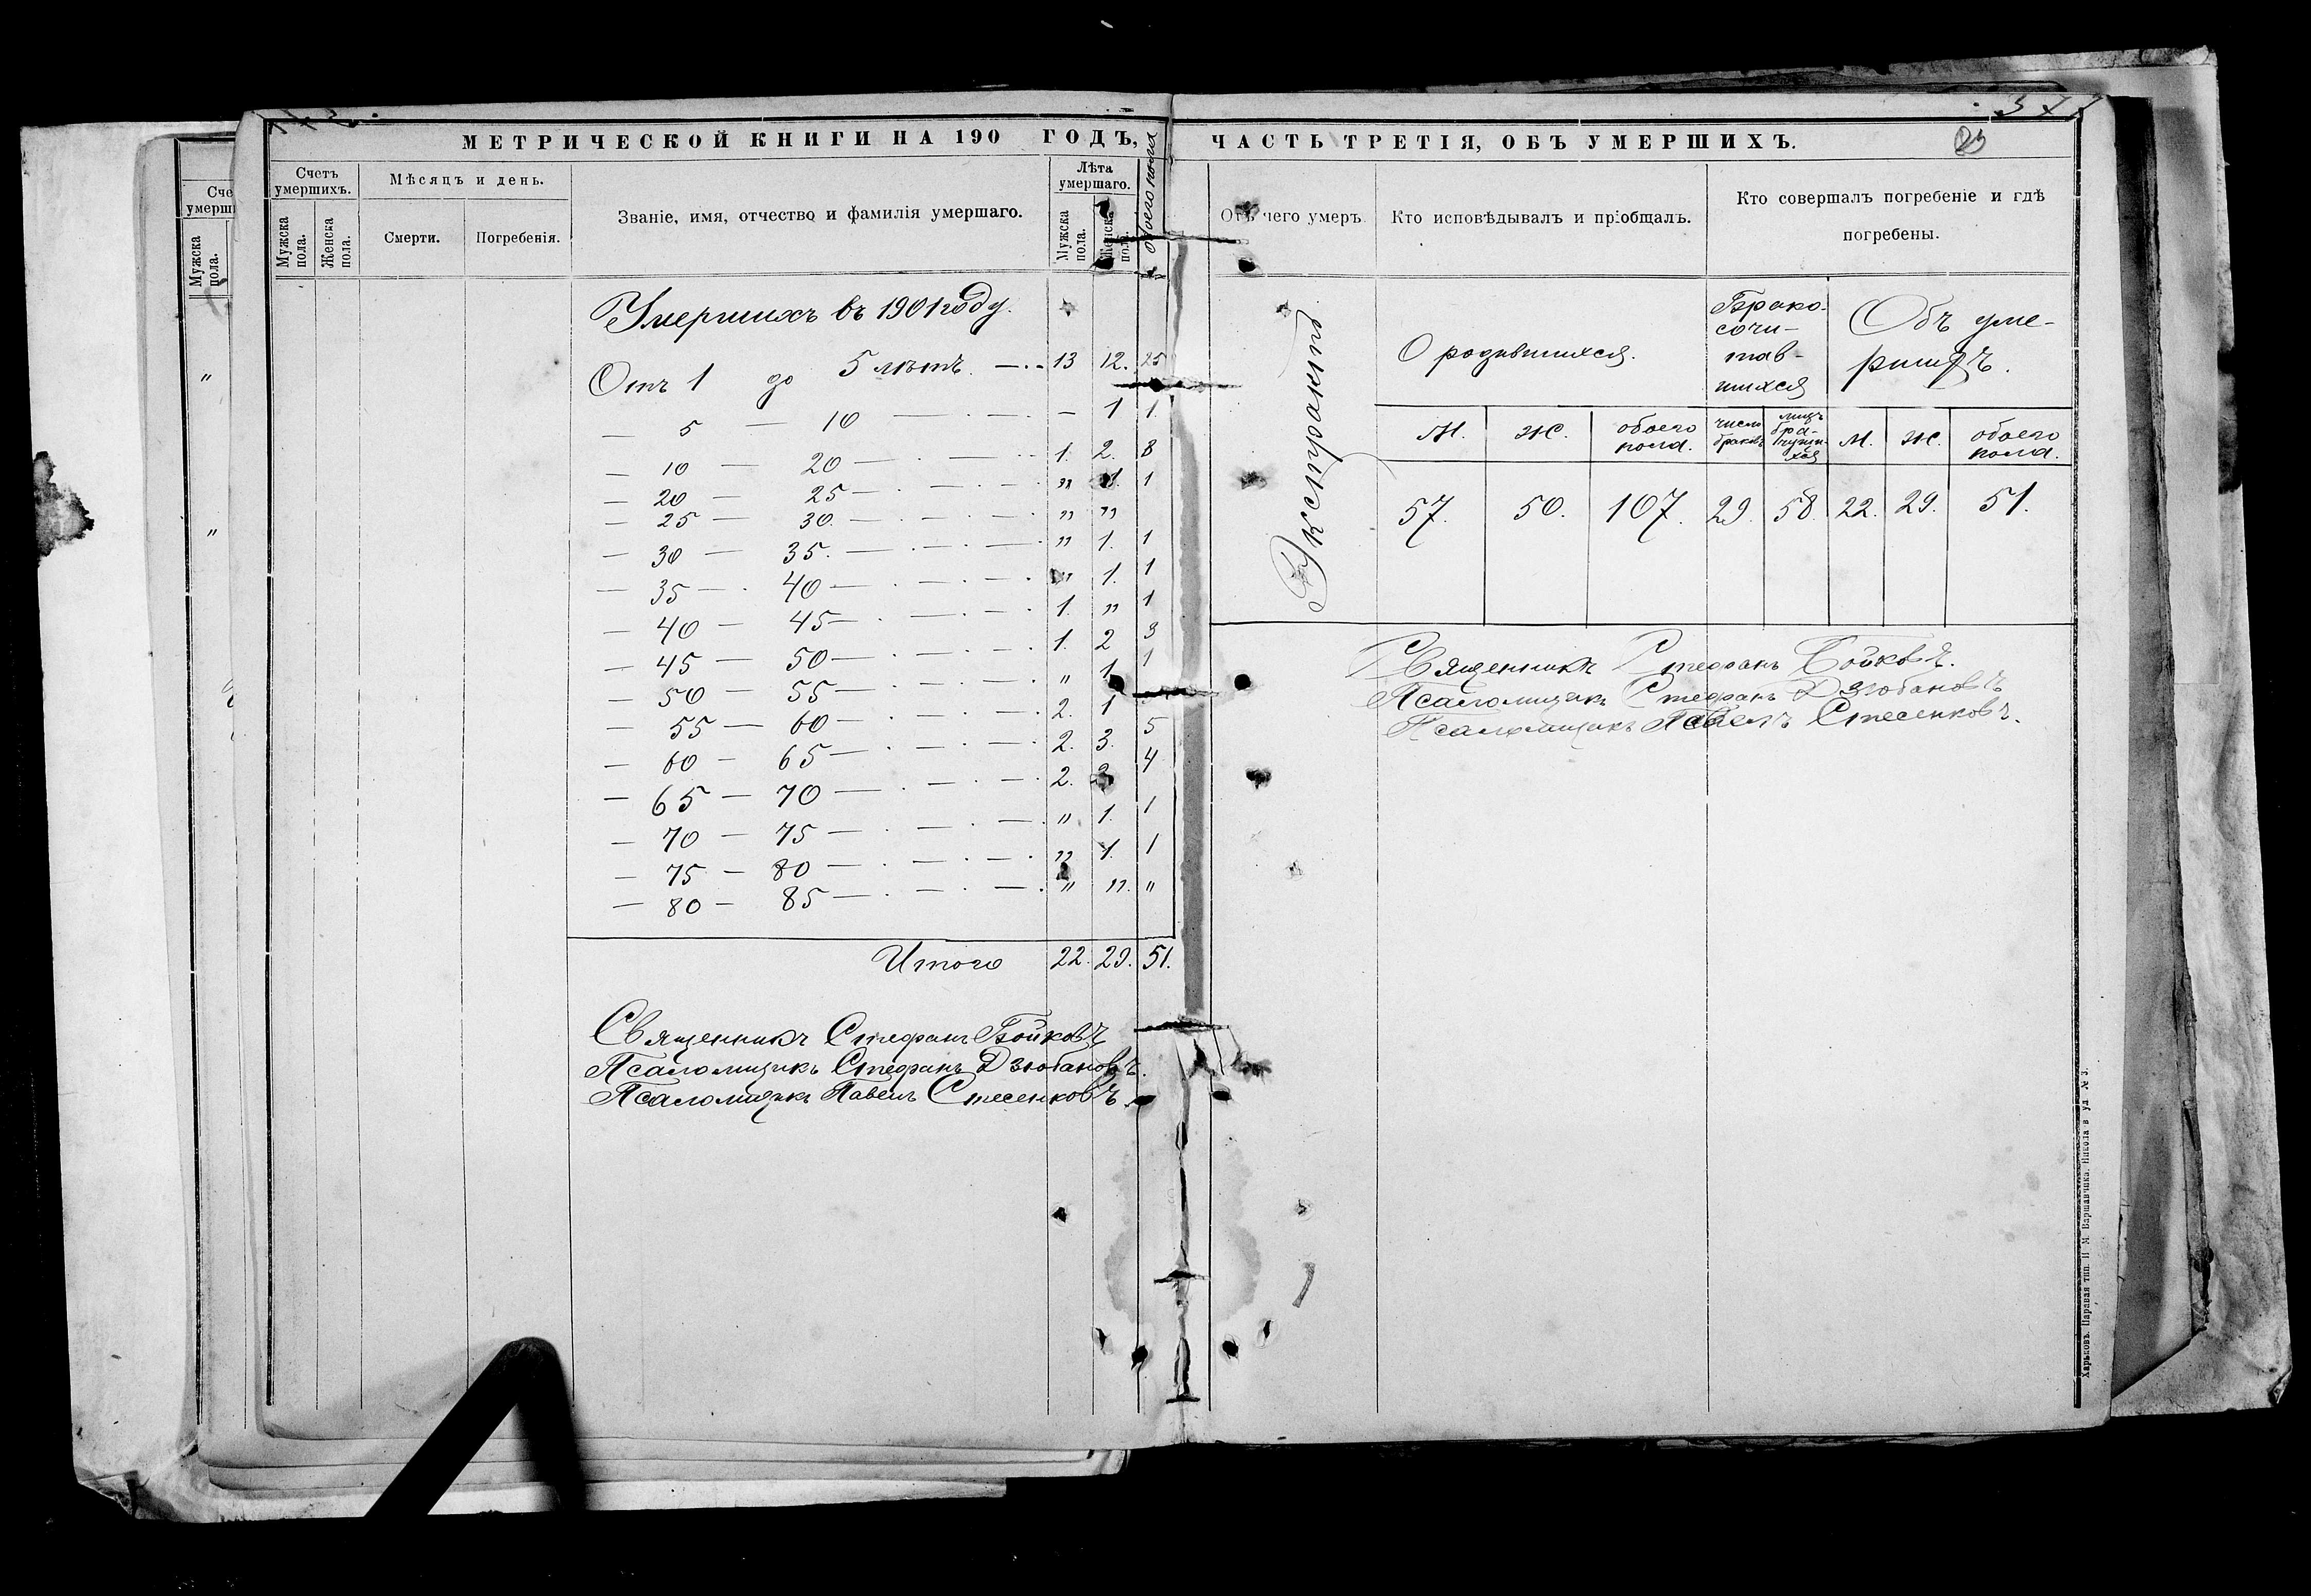 МЕТРИЧЕСКОЙ КНИГИ НА 190 ГОДЪ,
Счетъ умершихъ.
Мѣсяцъ и день.
Званіе, имя, отчество и фамилія умершаго.
Лѣта умершаго.
обоего пола
Мужска пола.
Женска пола.
Смерти.
Погребенія.
Мужска пола.
Женска пола.
Умершихъ въ 1901 году.
Отъ 1 до 5 лѣтъ. — 13 12. 25
— 5 — 10 — — 1 1.
— 10 — 20 — 1. 2. 8
— 20 — 25 — „ 1. 1
— 25 — 30. — „ „
— 30 — 35. — „ 1. 1
— 35 — 40 — „ 1. 1
— 40 — 45 — 1. „ 1
— 45 — 50 — 1. 2 3
— 50 — 55 — „ 1 1
— 55 — 60 — 2. 1
— 60 — 65 — 2. 3. 5
— 65 — 70 — 2. 2 4
— 70 — 75 — „ 1. 1
— 75 — 80 — „ 1. 1
— 80 — 85 — „ „ „
Итого 22. 29. 51.
Священникъ Стефанъ Бойковъ
Псаломщикъ Стефанъ Дзюбановъ.
Псаломщикъ Павелъ Стесенковъ.
ЧАСТЬ ТРЕТІЯ, ОБЪ УМЕРШИХЪ.
Отъ чего умеръ.
Кто исповѣдывалъ и пріобщалъ.
Кто совершалъ погребеніе и гдѣ
погребены.
Экстрактъ
О родившихся.
Брако-
сочи-
тав-
шихся
Объ уме-
ршихъ.
М. Ж. обоего пола. число браковъ лицъ М. Ж. обоего пола.
57. 50. 107. 29. 58. 22. 29. 51.
Священникъ Стефанъ Бойковъ.
Псаломщикъ Стефанъ Дзюбановъ
Псаломщикъ Павелъ Стесенковъ.
Счетъ
умерш
Мужска пола.